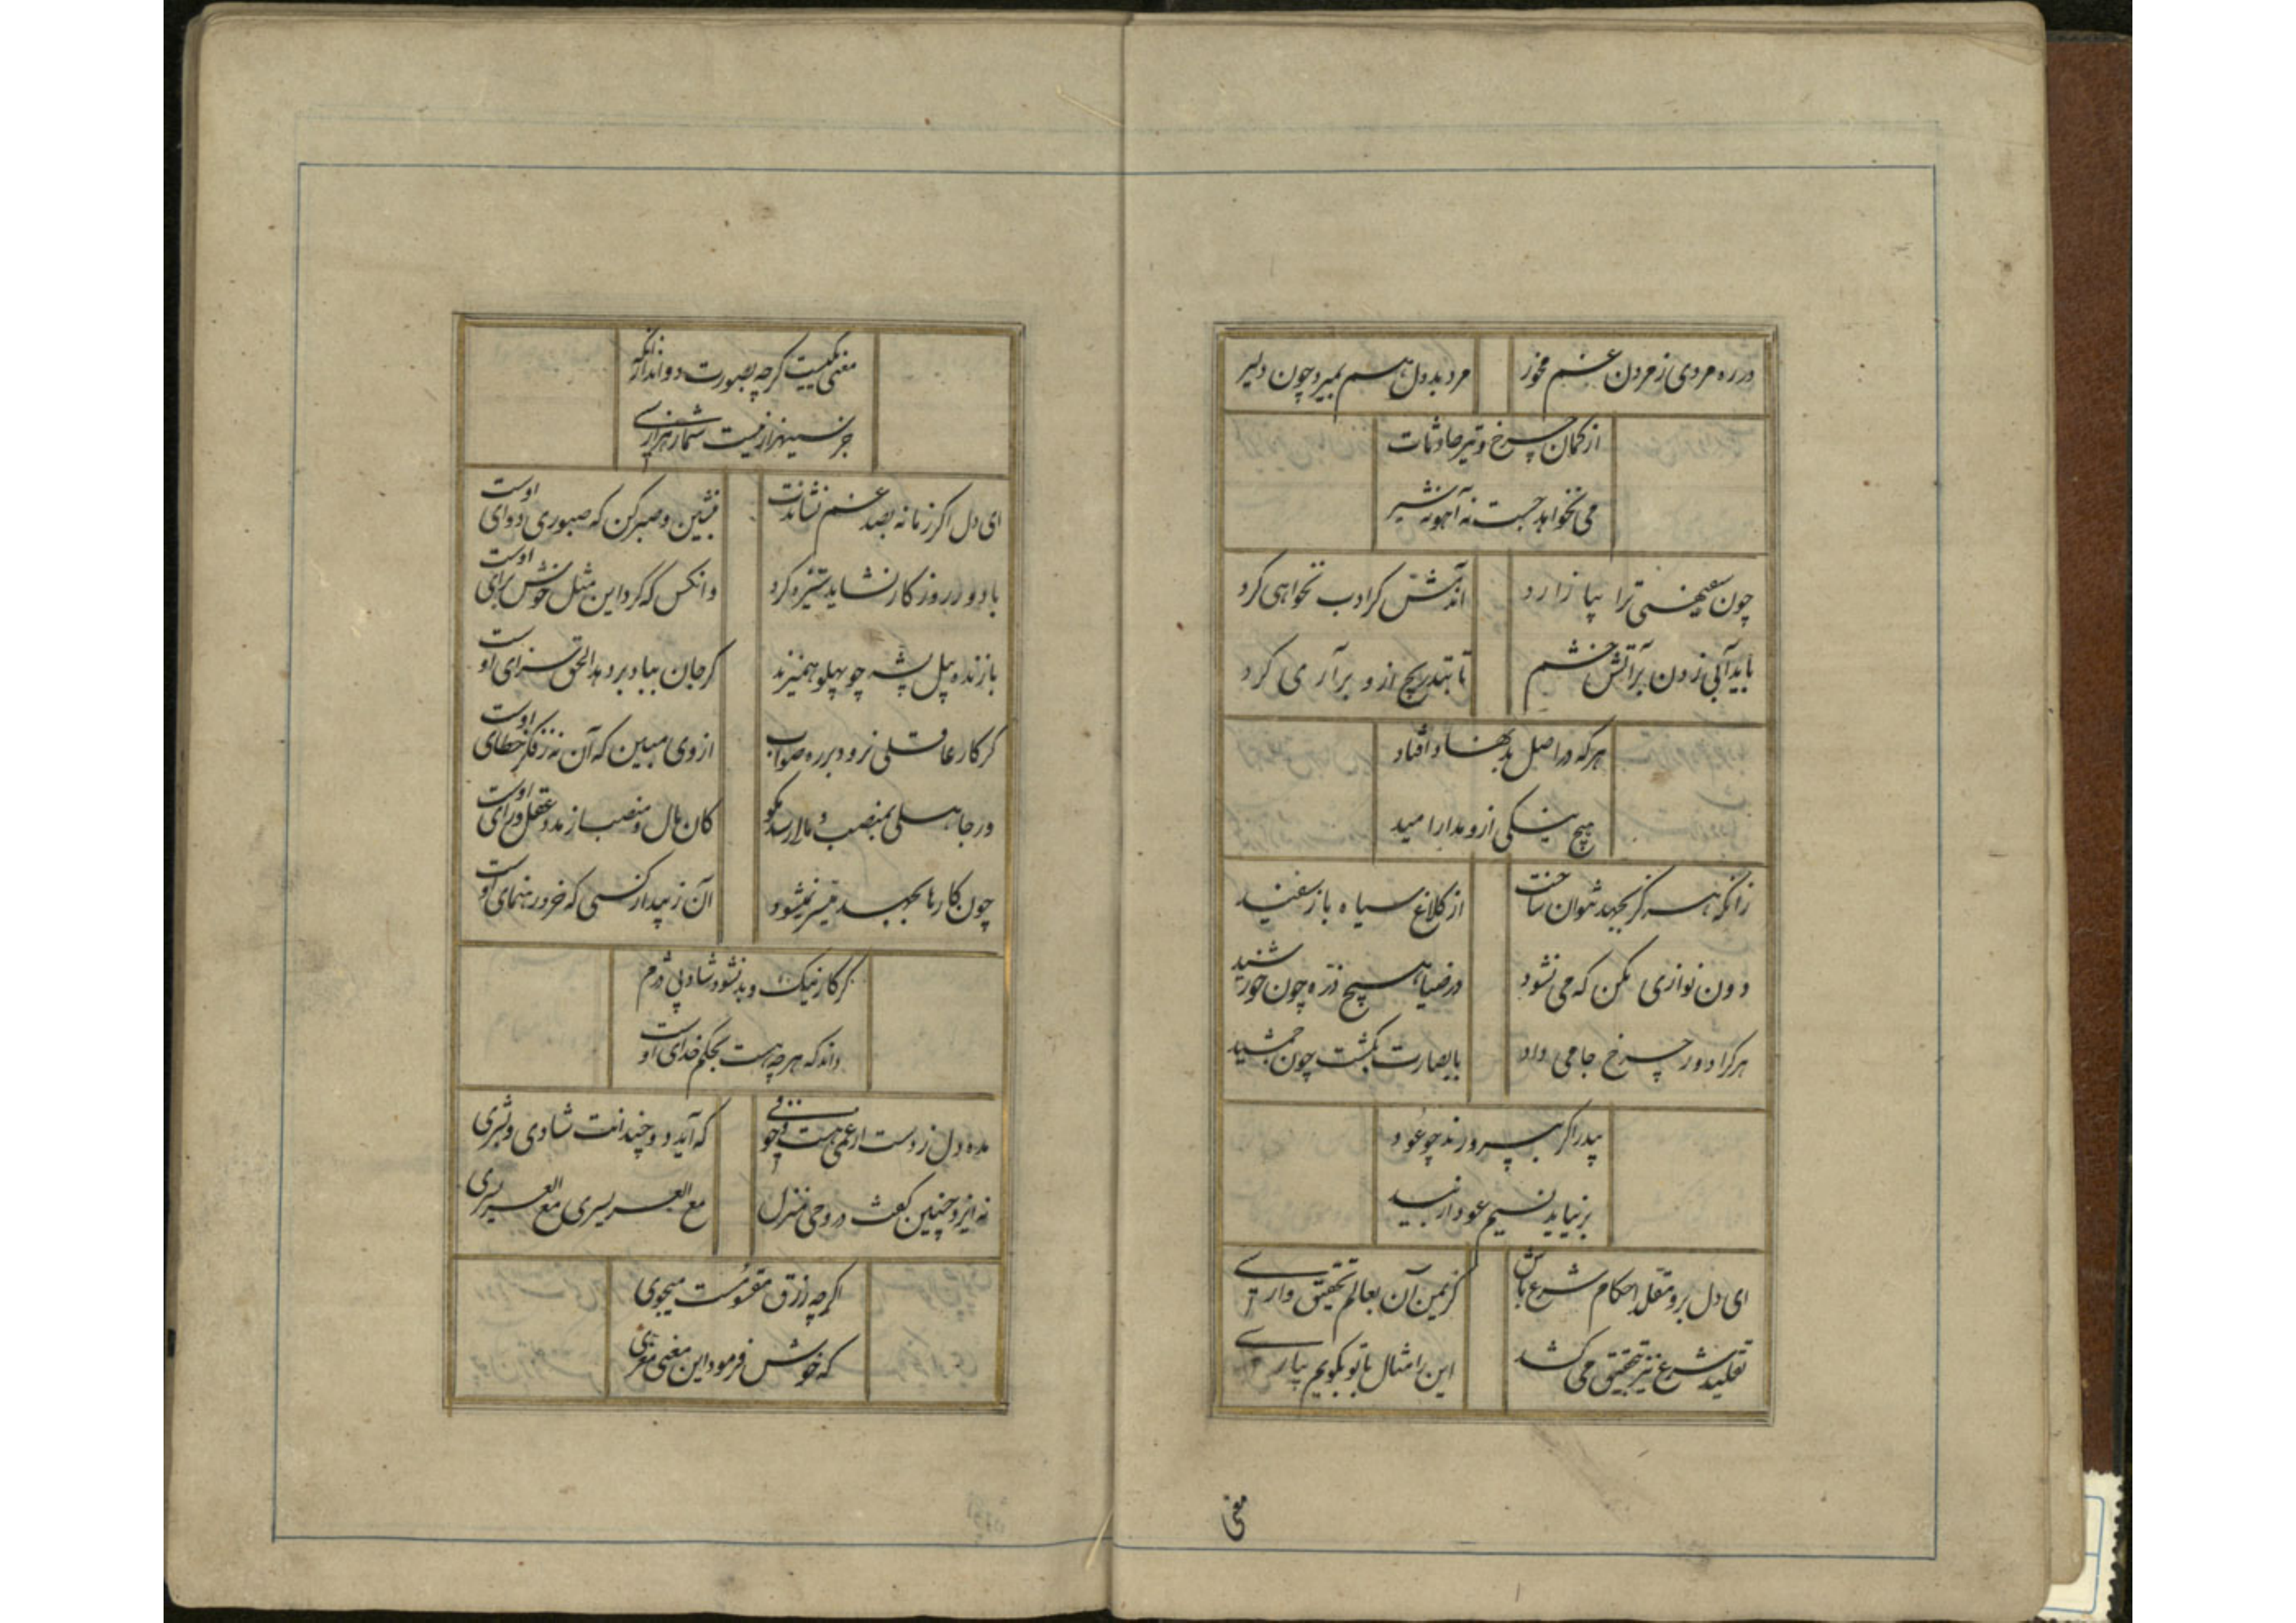 در ره مردی ز مردن غم مخور
مرد بددل هم بمیرد چون دلیر
از کمان چرخ و تیر حادثات
می نخواهد جست نه آهو نه شیر
چون سفیهی ترا بیازارد
باید آبی زدن بر آتش خشم
تا بتدریج ازو بر آری گرد
هر که در اصل بد نهاد افتاد
هیچ نیکی ازو مدار امید
زانکه هرگز بجهد نتوان ساخت
از کلاغ سیاه باز سفید
دون نوازی مکن که می نشود
در ضیا هیچ ذره چون خورشید
هر کرا دور چرخ جامی داد
بید را گر بپرورند چو عود
بر نیاید نسیم عود از بید
ای دل برو مقلد احکام شرع باش
کز یمن آن بعالم تحقیق وارسی
تقلید شرع نیز بتحقیق می کشد
این را مثال با تو بگویم بپارسی
معنی
معنی یکیست گرچه بصورت دواند از آنکه
جز سینهزار نیست شمار هزارسی
ای دل اگر زمانه بصد غم نشاندت
بنشین و صبر کن که صبوری دوای اوست
با دور روزگار نشاید ستیزه کرد
وانکس که کرد این مثل خوش برای اوست
با زنده پیل پشه چو پهلو همی زند
گر جان بباد بر دهد الحق سزای اوست
گر کار عاقلی نرود بر ره صواب
از وی مبین که آن نه ز فکر خطای اوست
ور جاهلی بمنصب و مالی رسد مگو
کان مال و منصب از مدد عقل و رای اوست
چون کارها بجهد میسر نمیشود
آن ز پندار کسی که خرد رهنمای اوست
گر کار نیک و بد نشود شاد پی دژم
داند که هر چه هست بحکم خدای اوست
مده دل ز دست ار غمی هست وقتی
که آید دو چندانت شادی و بشری
نه ایزد چنین گفت در وحی منزل
مع العسر یسری مع العسر یسری
اگرچه رزق مقسومست میجوی
که خوش فرمود این معنی معزی